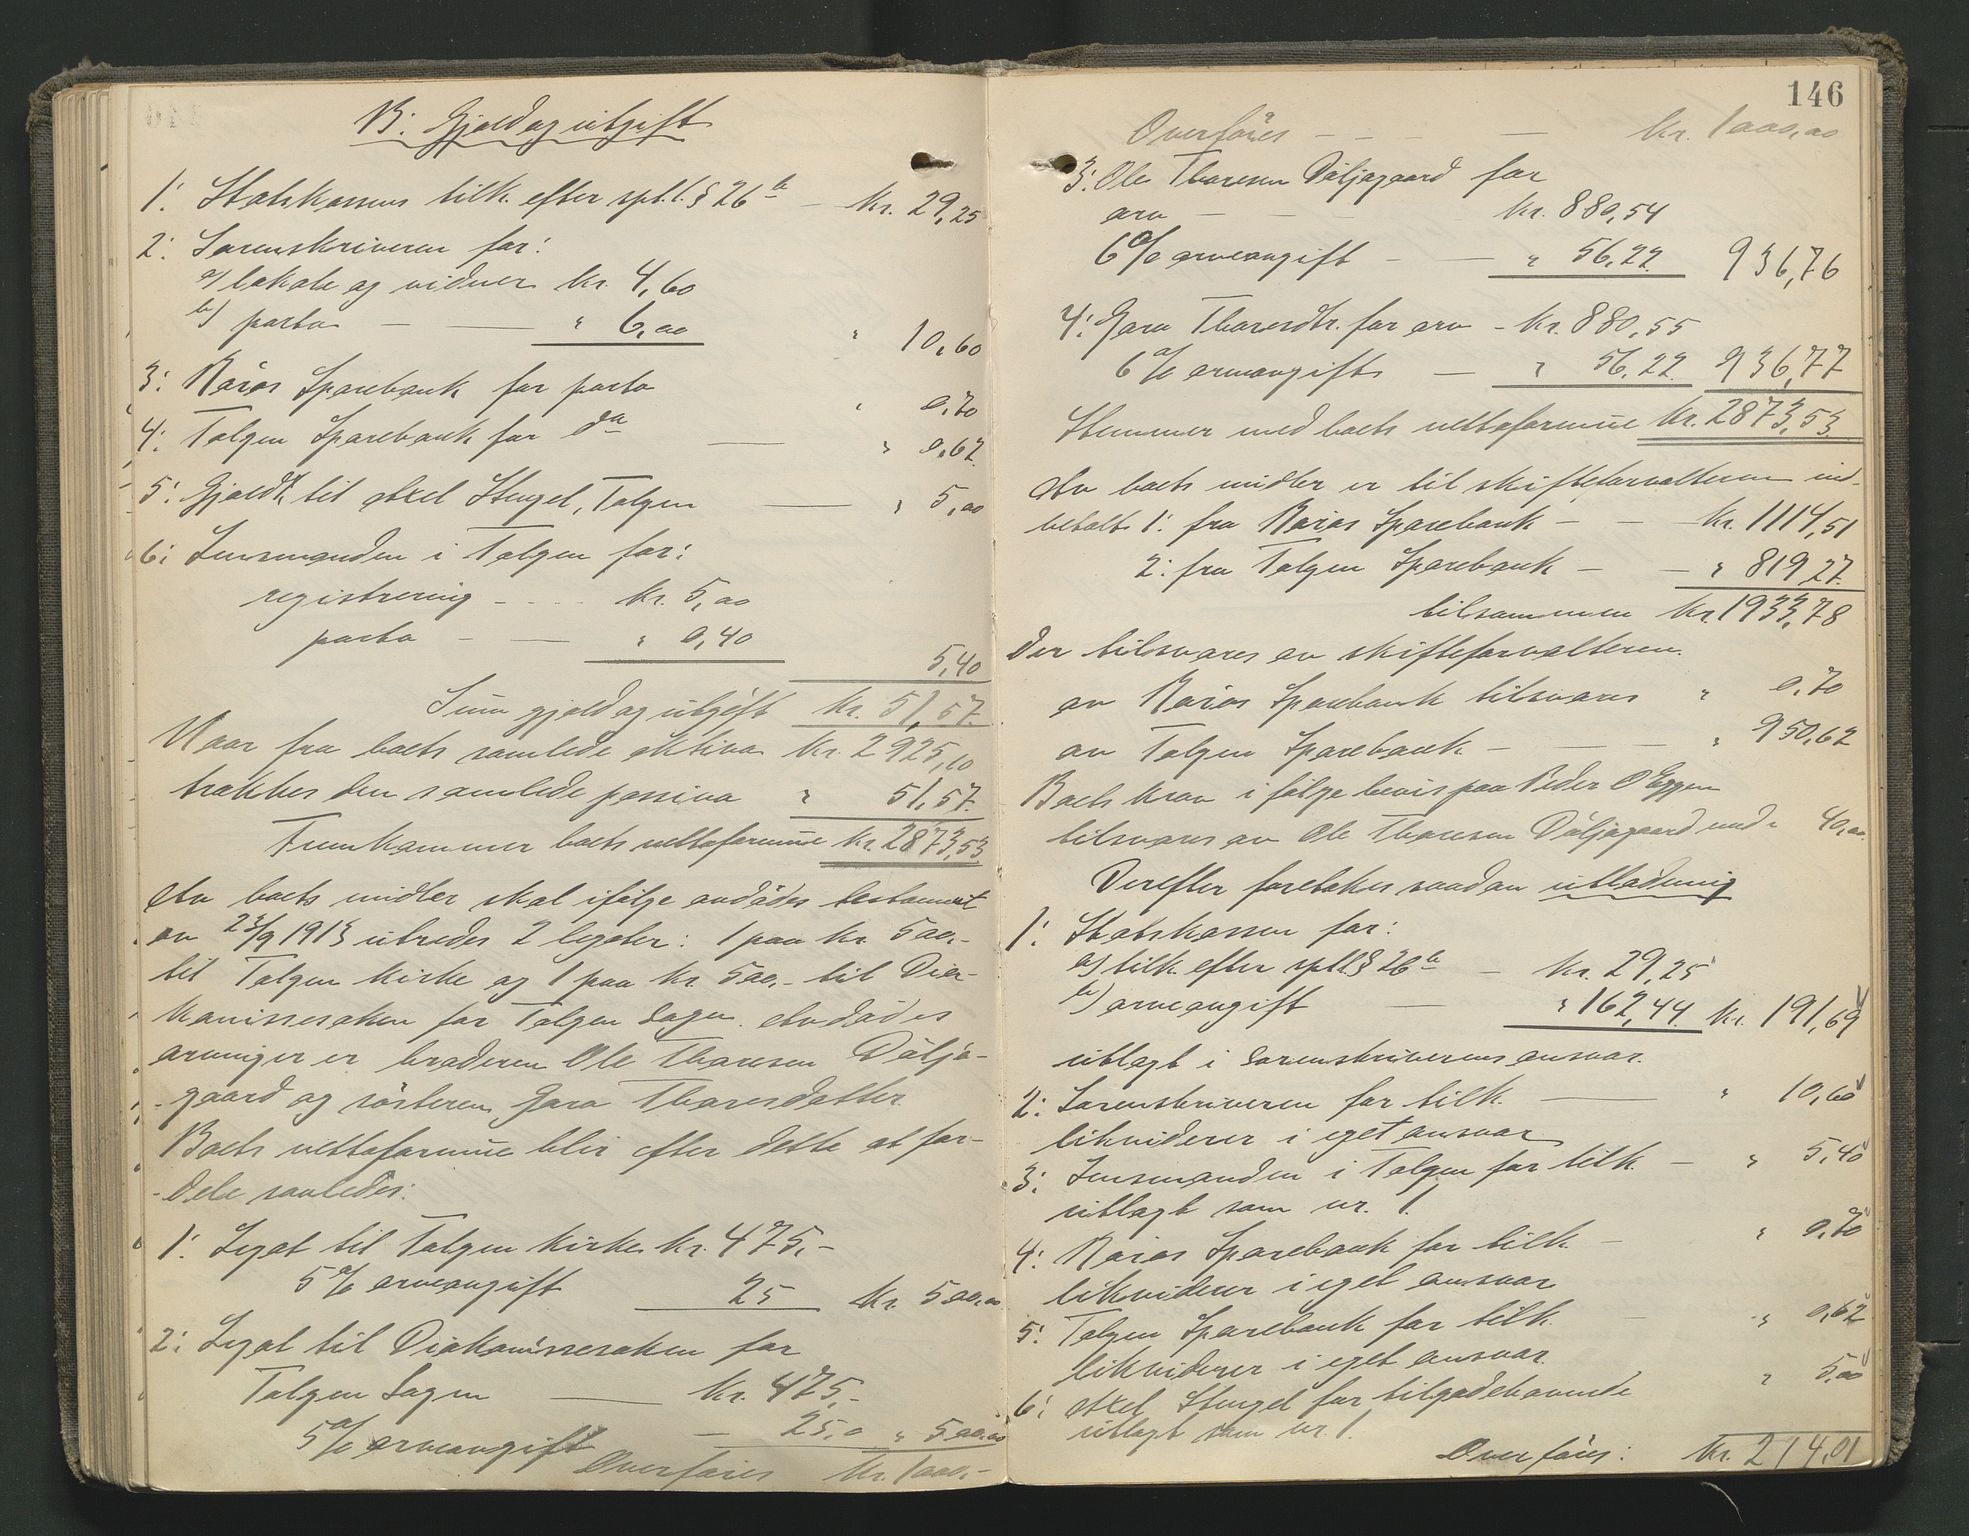 B: Gjæld og utgift
1: Statskassens tilk. efter spl.l. § 26 b — kr. 29,25
2: Sorenskriveren for:
a) lokale og vidner kr. 4,60
b) porto — — " 6,00 " 10,60
3: Røros Sparebank for porto " 0,70
4: Tolgen Sparebank for do — " 0,62
5: Gjæld til Axel Stengel, Tolgen — " 5,00
6: Lensmanden i Tolgen for:
registrering - - - - kr. 5,00
porto - — " 0,40 5,40
Sum gjæld og utgift kr. 51,57
Naar fra boets samlede aktiva kr. 2925,10
trækkes den samlede passiva " 51,57
Fremkommer boets nettoformue kr. 2873,53
Av boets midler skal ifølge avdødes testament
av 23/9 1913 utredes 2 legater: 1 paa kr. 500,-
til Tolgen kirke og 1 paa kr. 500,- til Dia-
konissesaken for Tolgen Sogn. Avdødes
arvinger er broderen Ole Thoresen Døljo-
gaard og søsteren Goro Thoresdatter.
Boets nettoformue blir efter dette at for-
dele saaledes:
1: Legat til Tolgen kirke kr. 475,-
5 % arveavgift 25 kr. 500,00
2: Legat til Diakonissesaken for
Tolgen Sogn — kr. 475,-
5 % arveavgift — 25,0 " 500,00
Overføres kr. 1000,-
146
Overføres - - - — kr. 1000,00
3: Ole Thoresen Døljogaard for
arv — - - kr. 880,54
6 % arveavgift - — " 56,22 936,76
4: Goro Thoresdtr. for arv - kr. 880,55
6 % arveavgift — " 56,22 936,77
Stemmer med boets nettoformue kr. 2873,53
Av boets midler er til skifteforvalteren ind-
betalt 1: fra Røros Sparebank - - kr. 1114,51
2: fra Tolgen Sparebank - — " 819,27
tilsammen kr. 1933,78
Der tilsvares av skifteforvalteren.
av Røros Sparebank tilsvares " 0,70
av Tolgen Sparebank - — — " 950,62
Boets krav ifølge bevis paa Peder O Eggen
tilsvares av Ole Thoresen Døljogaard med " 40,00
Derefter foretokes saadan utlodning
1: Statskassen for:
a) tilk. efter spl.l. § 26 b — kr. 29,25
b) arveavgift — " 162,44 kr. 191,69
utlagt i sorenskriverens ansvar.
2: Sorenskriveren for tilk. — " 10,60
likviderer i eget ansvar
3: Lensmanden i Tolgen for tilk. — " 5,40
utlagt som nr. 1.
4: Røros Sparebank for tilk. - " 0,70
likviderer i eget ansvar
5: Tolgen Sparebank for tilk. - " 0,62
likviderer i eget ansvar.
6: Axel Stengel for tilgodehavende " 5,00
utlagt som nr. 1.
Overføres: kr. 214,01